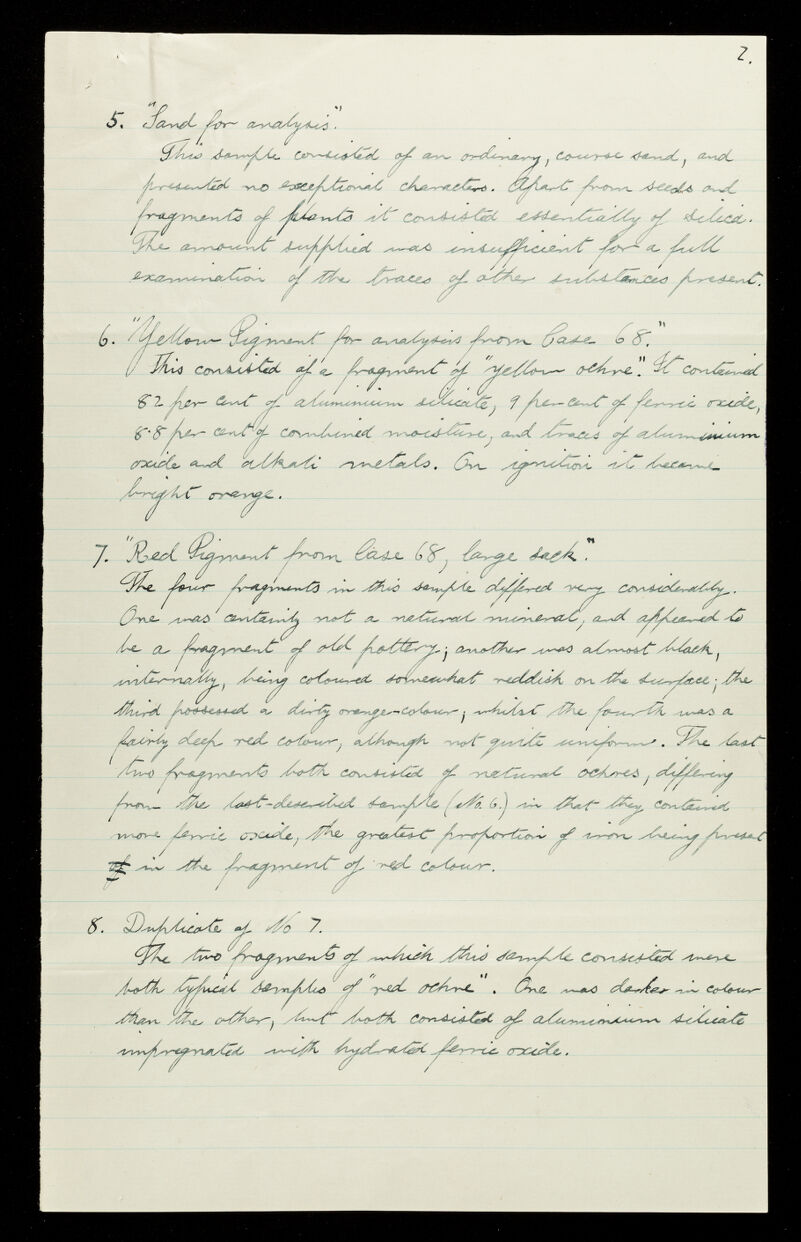 2.
5. "Sand for analysis".
This sample consisted of an ordinary, course sand, and
presented no exceptional characters. Apart from seeds and
fragments of plants it consisted essentially of silica.
The amount supplied was insufficient for a full
examination of the traces of other substances present.
6. "Yellow Pigment for analysis from Case 68."
This consisted of a fragment of "yellow ochre". It contained
82 per cent of aluminium silicate, 9 per cent of ferric oxide,
8·8 per cent of combined moisture, and traces of aluminium
oxide and alkali metals. On ignition it became
bright orange.
7. "Red Pigment from Case 68, large sack".
The four fragments in this sample differed very considerably.
One was certainly not a natural mineral, and appeared to
be a fragment of old pottery; another was almost black,
internally, being coloured somewhat reddish on the surface; the
third possessed a dirty orange-colour; whilst the fourth was a
fairly deep red colour, although not quite uniform. The last
two fragments both consisted of natural ochres, differing
from the last-described sample (No. 6.) in that they contained
more ferric oxide, the greatest proportion of iron being present
of in the fragment of red colour.
8. Duplicate of No 7.
The two fragments of which this sample consisted were
both typical samples of "red ochre". One was darker in colour
than the other, but both consisted of aluminium silicate
impregnated with hydrated ferric oxide.